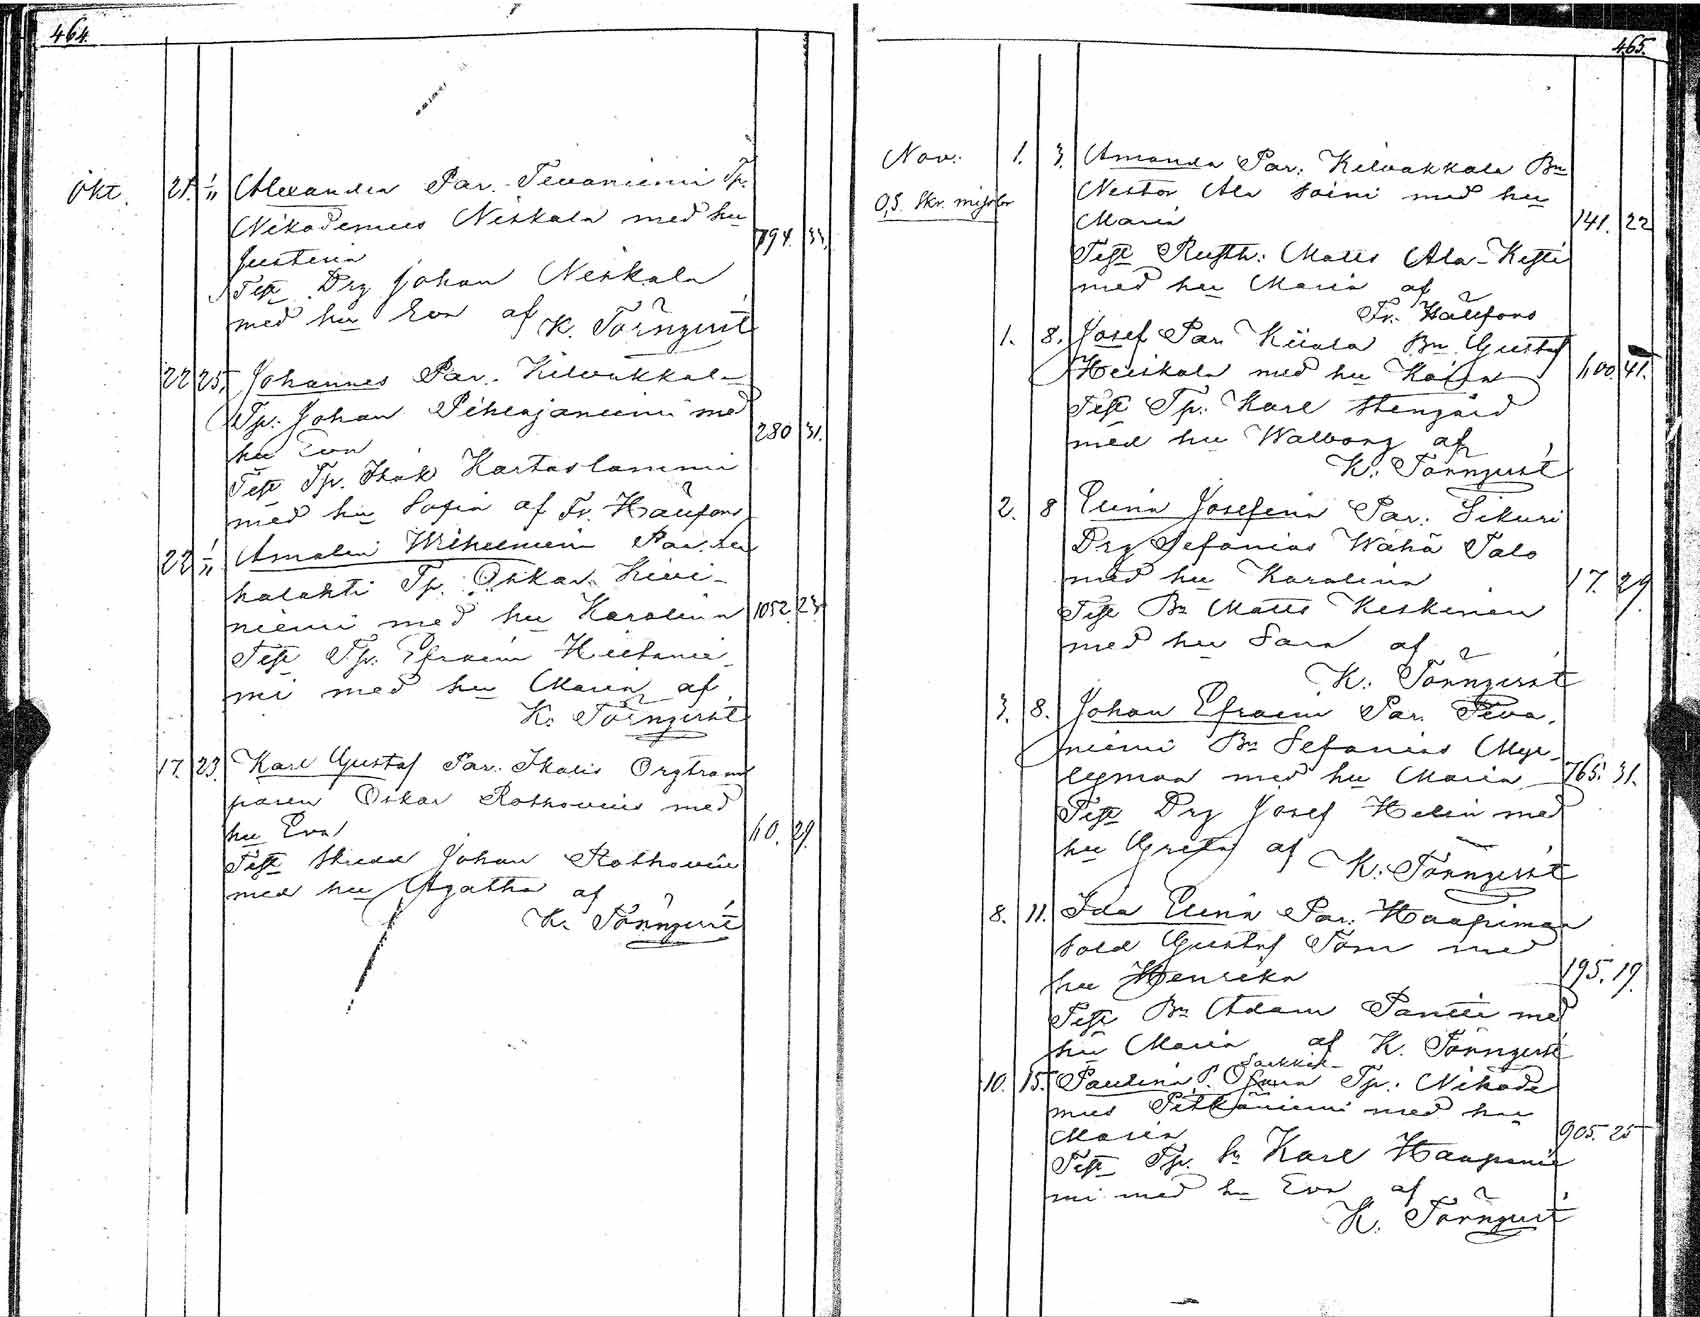 464.
Okt. 21. 1/11 Alexandra Par. Tevaniemi Tp.
Nikodemus Niskala med hu
Justina 794. 33.
Test Drg Johan Niskala
med hu Eva af
K. Törnqvist
22 25. Johannes Par. Kilvakkala
Tp. Johan Pihlajaniemi med
hu Eva 280 31.
Test Tp. Isak Kartaslammi
med hu Sofia af Fr. Häufons
22 1/11 Amalia Wilhelmina Par. Lu
halahti Tp. Oskar Kivi-
niemi med hu Karolina 1052. 23.
Test Tp. Efraim Hietanie
mi med hu Maria af
K. Törnqvist
17. 23. Karl Gustaf Par. Ikalis Orgtram
paren Oskar Rothovius med
hu Eva 60. 29.
Test Skredd Johan Rothovius
med hu Agatha af
K. Törnqvist
465.
Nov. 1. 3. Amanda Par. Kilvakkala Bn
O,S. Skr. Nestor Ala Soini med hu
Maria 141. 22
Test Rusth. Matts Ala-Kesti
med hu Maria af
Fr. Häufons
1. 8. Josef Par. Kiiala Bn Gustaf
Heiskala med hu Kaisa 600. 41.
Test Tp. Karl Stengård
med hu Walborg af
K. Törnqvist
2. 8 Elina Josefina Par. Sikuri
Drg Sefanias Wähä Talo
med hu Karolina 17. 29
Test Bn Matts Keskinen
med hu Sara af
K. Törnqvist
3. 8. Johan Efraim Par. Teva
niemi Bn Sefanias Myl
lymaa med hu Maria 765. 31.
Test Drg Josef Helin med
hu Greta af K. Törnqvist
8. 11. Ida Elina Par. Haapimaa
Sold Gustaf Tom med
hu Henrika 195. 19.
Test Bn Adam Pantti med
hu Maria af K. Törnqvist
10. 15. Paulina P. Tp. Nikode
mus Pitkäniemi med hu
Maria 905. 25
Test Tp. Sn Karl Haapanie
mi med hu Eva af
K. Törnqvist